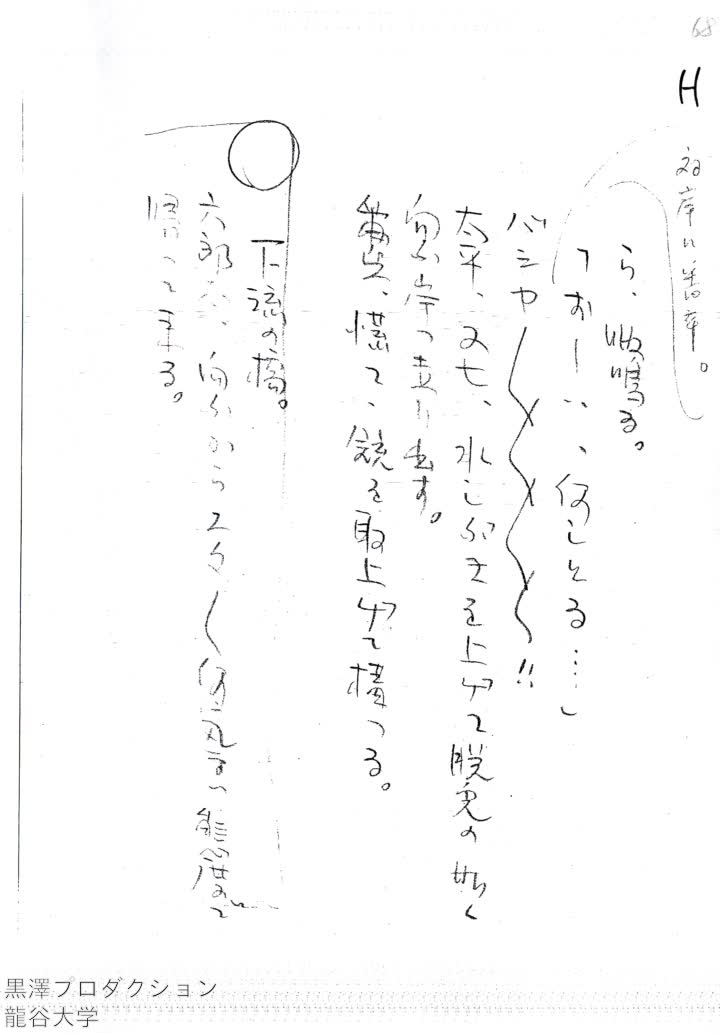 68
H
対岸に着岸。
ら、怒鳴る。
「おーい、何しとる……」
バシャ〱〱〱!!
太平、又七、水しぶきを上げて脱兎の如く
向ふ岸へ走り出す。
慌て、銃を取上げて構へる。
下流の橋。
六郎太、向ふから又々〱何気ない態度で
帰って来る。
黒澤プロダクション
龍谷大学